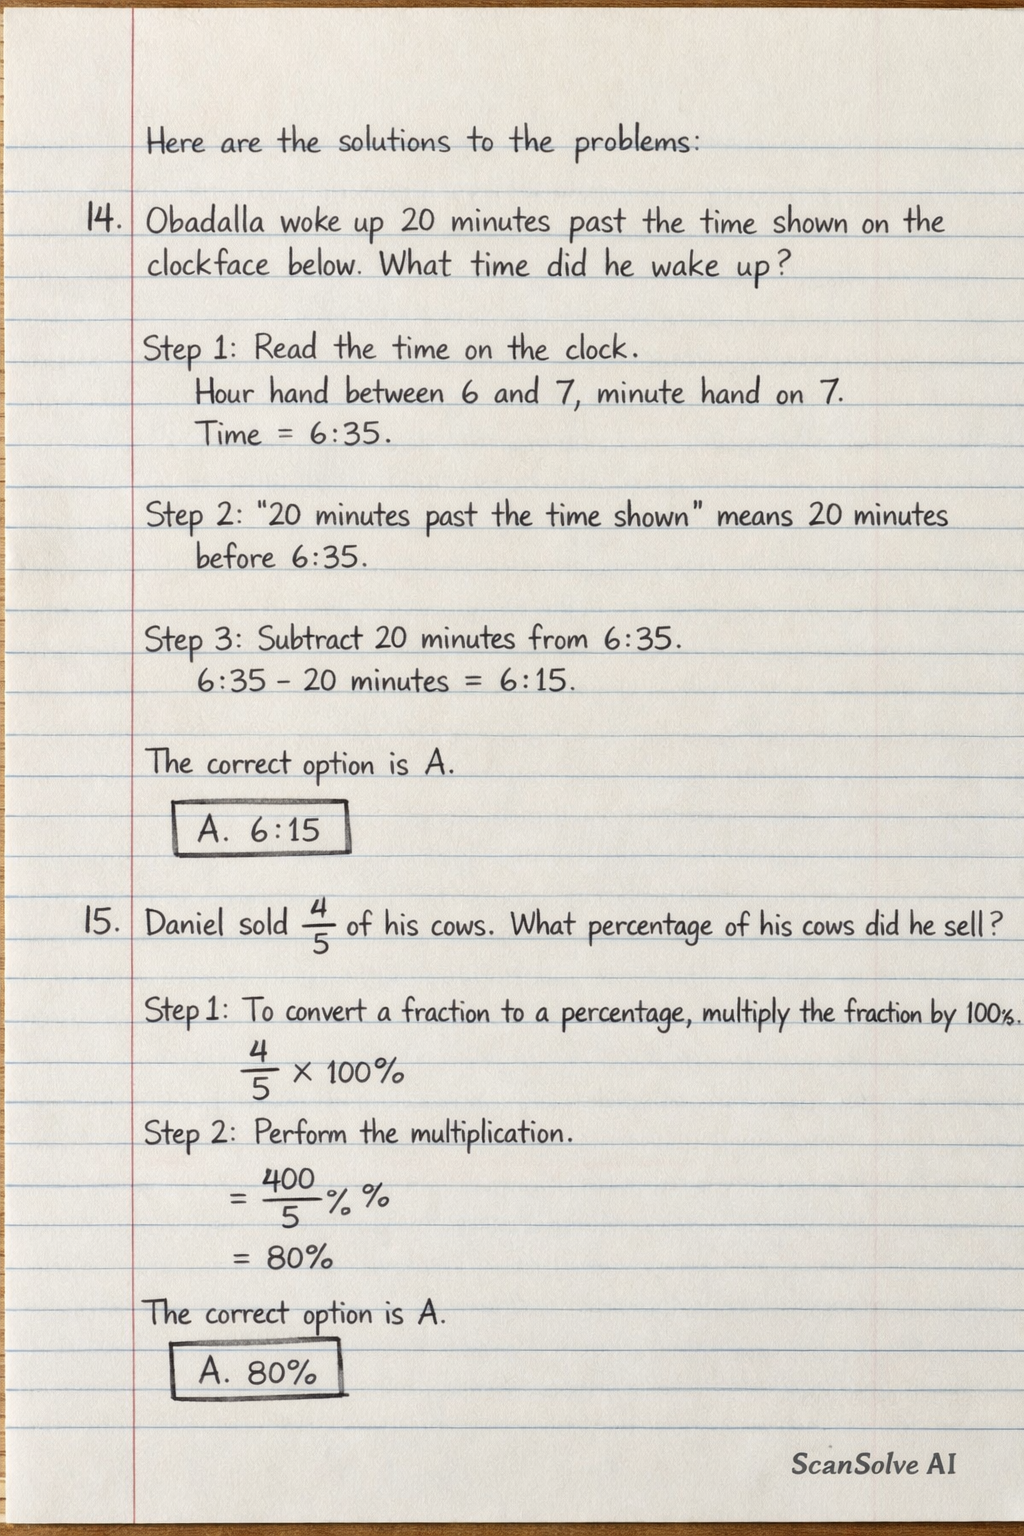 Here are the solutions to the problems:
14. Obadalla woke up 20 minutes past the time shown on the
clockface below. What time did he wake up?
Step 1: Read the time on the clock.
Hour hand between 6 and 7, minute hand on 7.
Time = 6:35.
Step 2: "20 minutes past the time shown" means 20 minutes
before 6:35.
Step 3: Subtract 20 minutes from 6:35.
6:35 - 20 minutes = 6:15.
The correct option is A.
A. 6:15
15. Daniel sold 4/5 of his cows. What percentage of his cows did he sell?
Step 1: To convert a fraction to a percentage, multiply the fraction by 100%.
4/5 × 100%
Step 2: Perform the multiplication.
= 400/5 % %
= 80%
The correct option is A.
A. 80%
ScanSolve AI